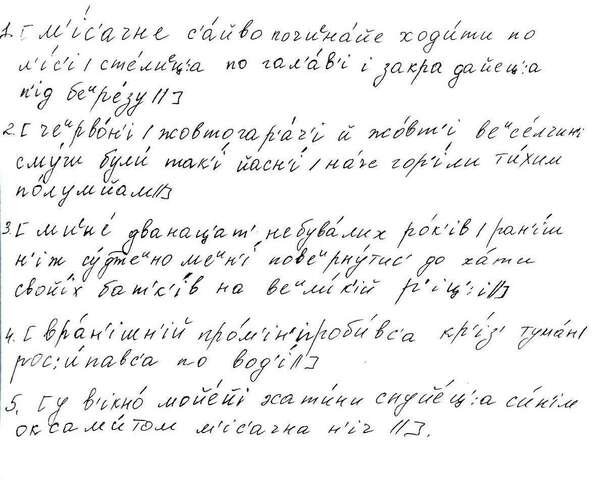 1. [ м'іс'ачне с'а́йво почиᵉна́йе ходи́ти по
л'і́с'і / сте́лиц':а по гал'а́в'і і закра дайец':а
п'ід беᶦре́зу // ]
2. [ чеᶦрво́н'і / жовтогар'а́ч'і й жо́вт'і веᶦсе́лчин'і
сму́ги були́ так'і́ йасн'і́ / на́че гор'і́ли ти́хим
по́лумйам // ]
3. [ миᵉне́ дванац'ат' небува́лих ро́к'ів / ран'і́ш
н'іж су́джеᶦно меᶦн'і́ повеᶦрну́тис' до ха́ти
свойі́х бат'к'і́в на веᶦли́кій р'іц':і // ]
4. [ вра́н'ішн'ій про́м'ін' проби́вс'а кр'із' тума́н /
роси́павс'а по вод'і́ // ]
5. [ у в'ікно́ мойе́йі хати́ни снуйе́ц':а си́н'ім
оксами́том м'іс'ачна н'іч // ].